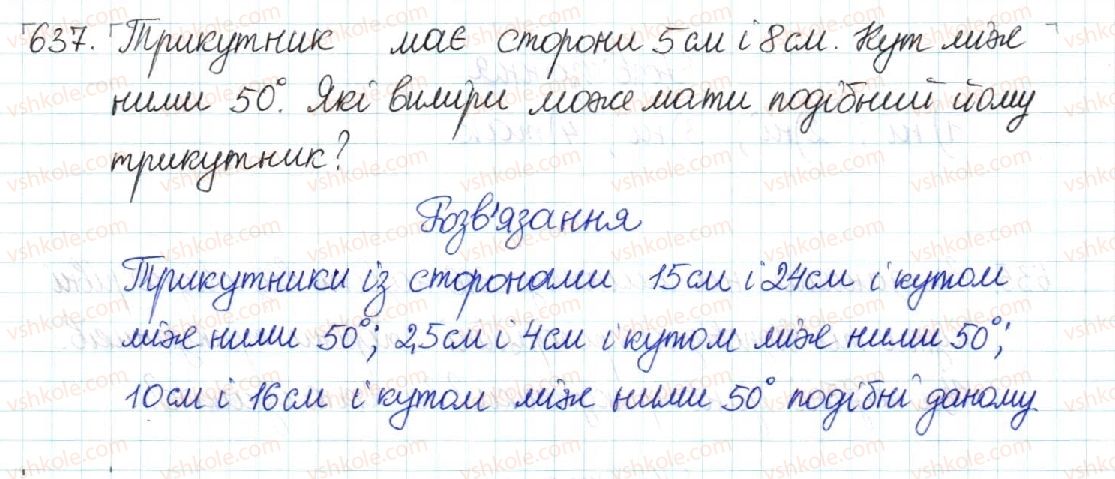 637. Трикутник має сторони 5 см і 8 см. Кут між
ними 50°. Які виміри може мати подібний йому
трикутник?
Розв'язання
Трикутники із сторонами 15 см і 24 см і кутом
між ними 50°; 2,5 см і 4 см і кутом між ними 50°;
10 см і 16 см і кутом між ними 50° подібні даному